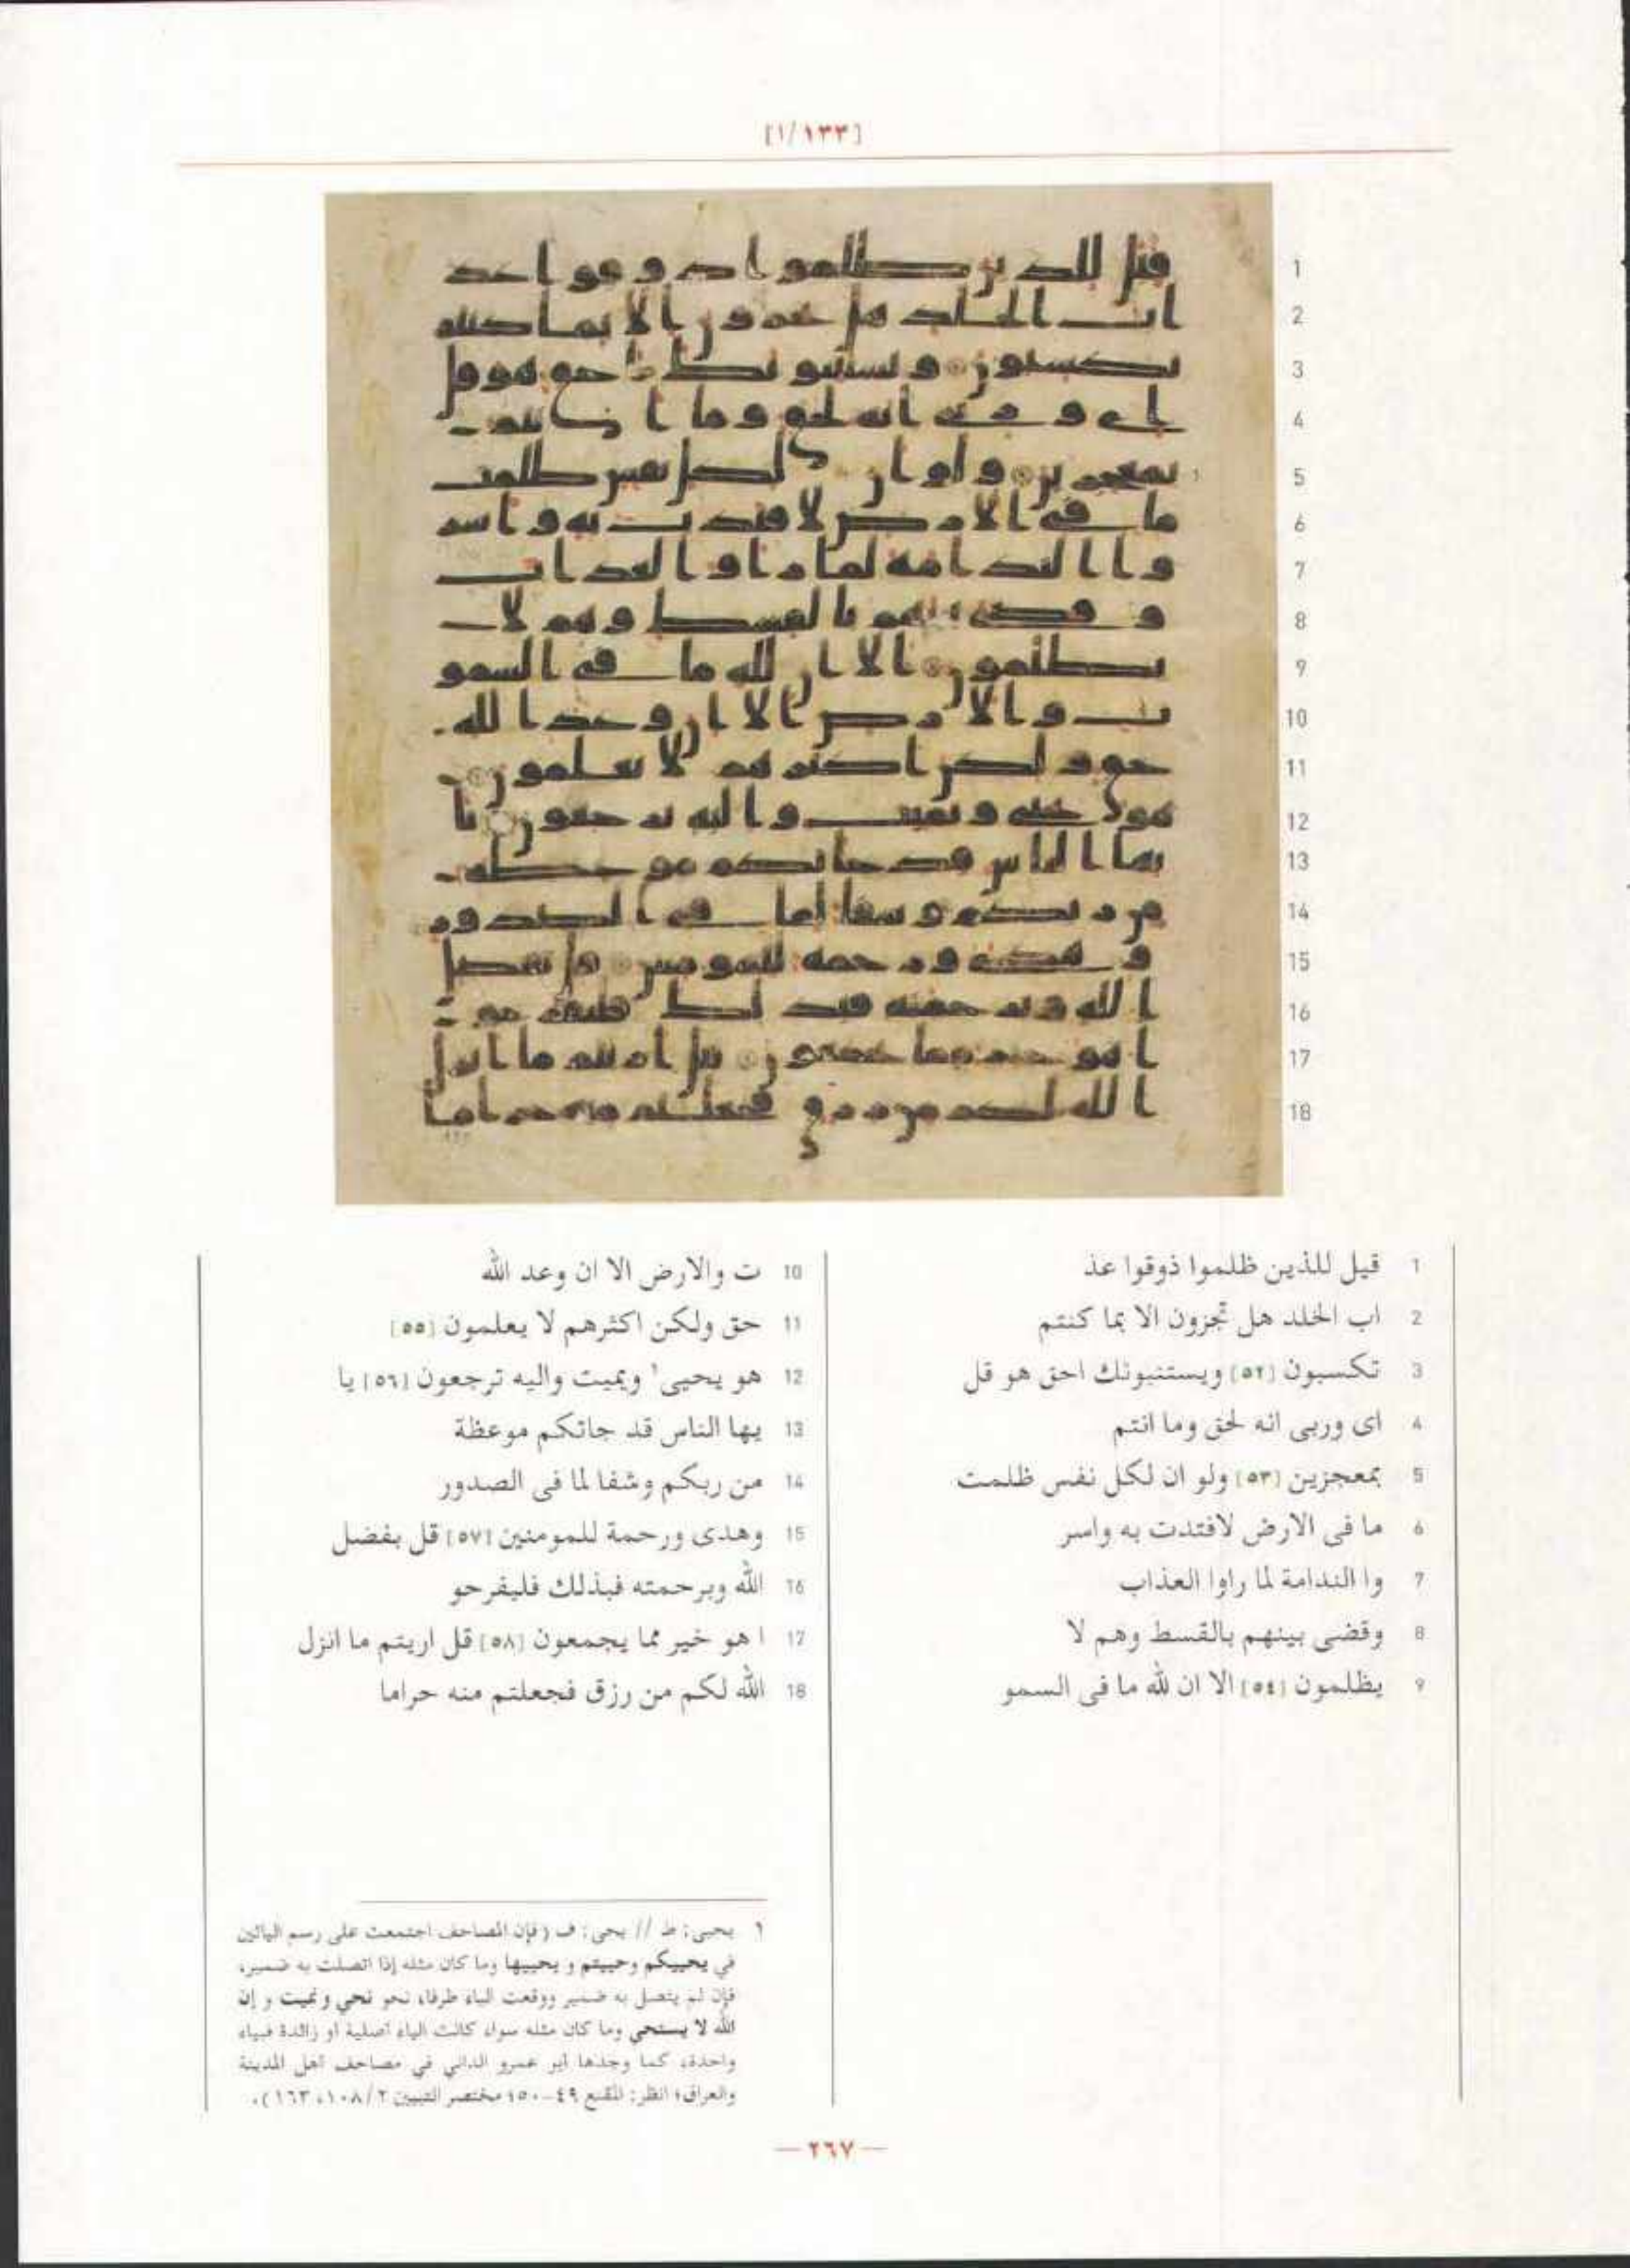 [١/١٣٣]
1 قيل للذين ظلموا ذوقوا عذ
2 اب الخلد هل تجزون الا بما كنتم
3 تكسبون [٥٢] ويستنبونك احق هو قل
4 اى وربى انه لحق وما انتم
5 بمعجزين [٥٣] ولو ان لكل نفس ظلمت
6 ما فى الارض لافتدت به واسر
7 وا الندامة لما راوا العذاب
8 وقضى بينهم بالقسط وهم لا
9 يظلمون [٥٤] الا ان لله ما فى السمو
10 ت والارض الا ان وعد الله
11 حق ولكن اكثرهم لا يعلمون [٥٥]
12 هو يحيى١ ويميت واليه ترجعون [٥٦] يا
13 يها الناس قد جاتكم موعظة
14 من ربكم وشفا لما فى الصدور
15 وهدى ورحمة للمومنين [٥٧] قل بفضل
16 الله وبرحمته فبذلك فليفرحو
17 ا هو خير مما يجمعون [٥٨] قل اريتم ما انزل
18 الله لكم من رزق فجعلتم منه حراما
١ يحيى: ط // يحى: ف (فإن المصاحف اجتمعت على رسم اليائين
في يحييكم وحييتم و يحييها وما كان مثله إذا اتصلت به ضمير،
فإن لم يتصل به ضمير ووقعت الياء طرفا، نحو نحي ونميت و إن
الله لا يستحي وما كان مثله سواء كانت الياء أصلية أو زائدة فبياء
واحدة، كما وجدها أبو عمرو الداني في مصاحف أهل المدينة
والعراق؛ انظر: المقنع ٤٩-٥٠؛ مختصر التبيين ١٠٨/٢، ١٦٣).
— ٢٦٧ —